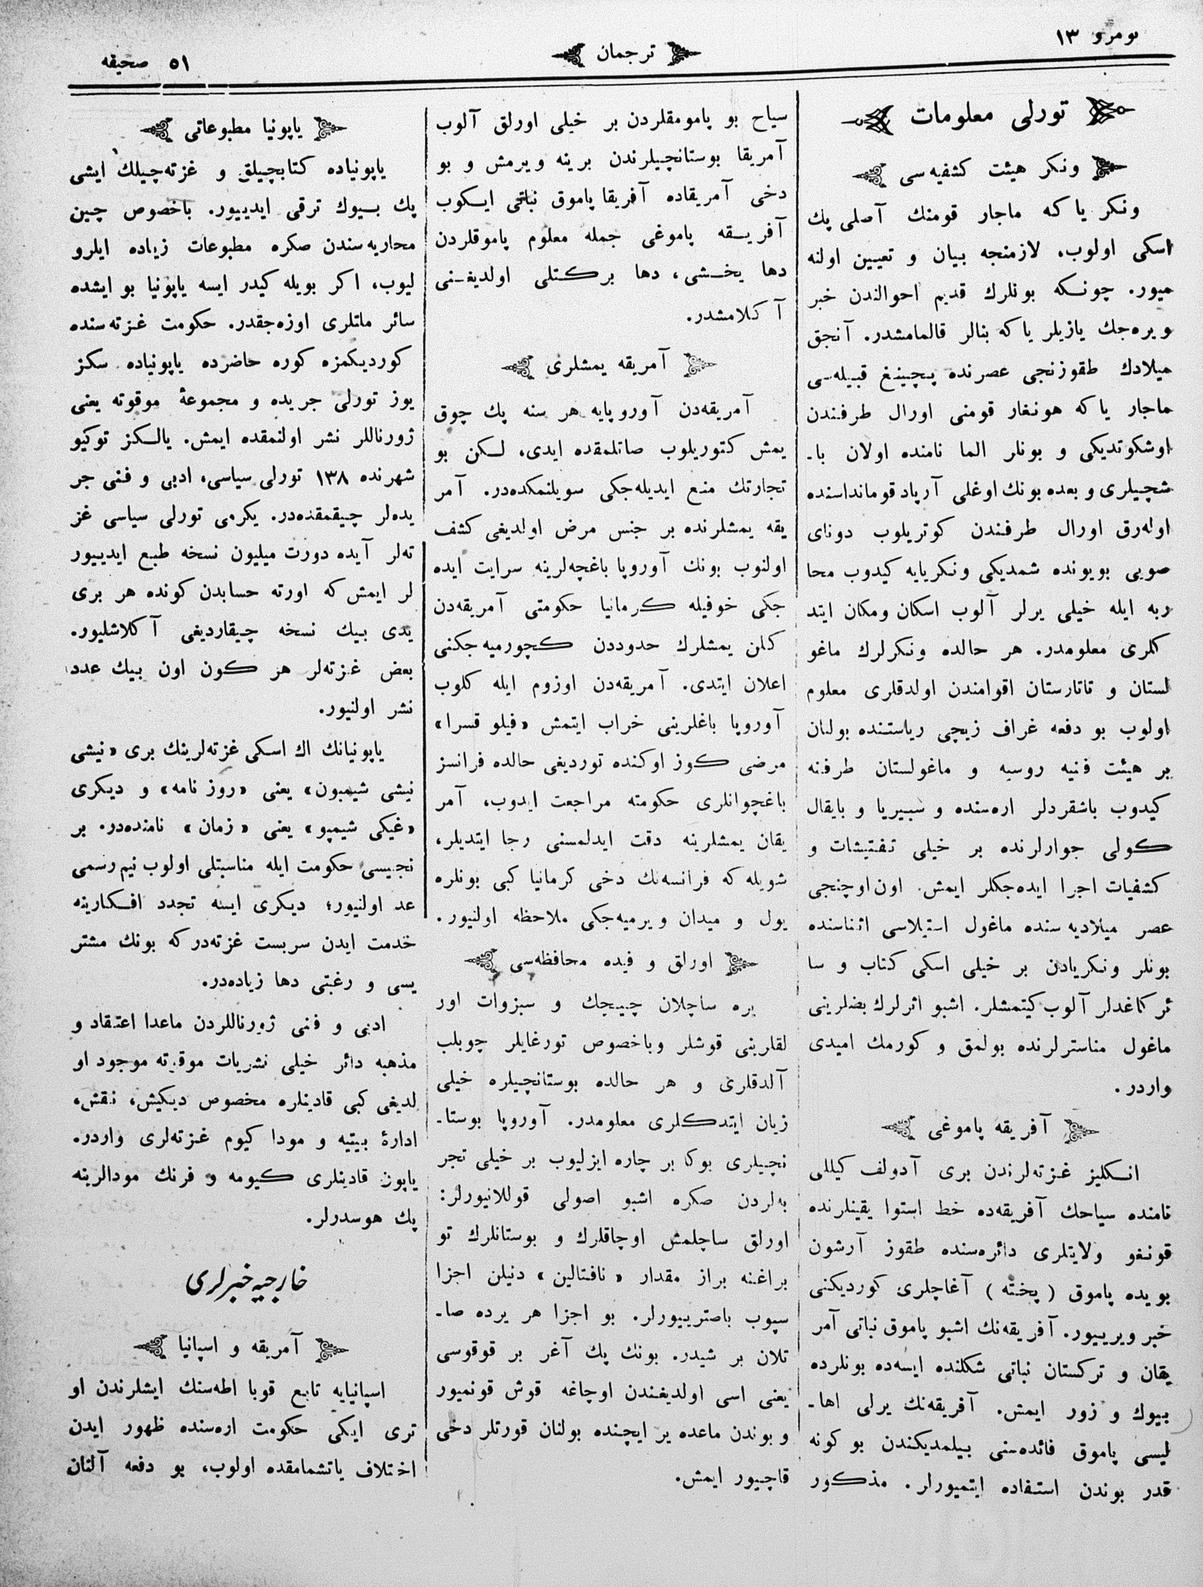 نومرو ١٣
ترجمان
٥١ صحیفه
تورلی معلومات
ونكر هیئت كشفیه سی
ونكر یا كه ماجار قومنك آصلی پك
اسكی اولوب، لازمنجه بیان و تعیین اولنه
میور. چونكه بونلرك قدیم احوالندن خبر
ویره جك یازیلر یا كه بنالر قالمامشدر. آنجق
میلادك طقوزنجی عصرنده پچینغ قبیله سی
ماجار یا كه هونغار قومنی اورال طرفندن
اوشكوتدیكی و بونلر الما نامنده اولان با-
شچیلری و بعده بونك اوغلی آرپاد قوماندا‌سنده
اوله رق اورال طرفندن كوتریلوب دونای
صویی بویونده شمدیكی ونكریایه كیدوب محا
ربه ایله خیلی یرلر آلوب اسكان ومكان ایتد
كلری معلومدر. هر حالده ونكرلرك ماغو
لستان و تاتارستان اقوامندن اولدقلری معلوم
اولوب بو دفعه غراف زیچی ریاستنده بولنان
بر هیئت فنیه روسیه و ماغولستان طرفنه
كیدوب باشقردلر اره سنده و سیبیریا و بایقال
كولی جوارلرنده بر خیلی تفتیشات و
كشفیات اجرا ایده جكلر ایمش. اون اوچنجی
عصر میلادیه سنده ماغول استیلاسی اثناسنده
بونلر ونكریادن بر خیلی اسكی كتاب و سا
ئر كاغدلر آلوب كیتمشلر. اشبو اثرلرك بعضلرینی
ماغول مناسترلرنده بولمق و كورمك امیدی
واردر.
آفریقه پاموغی
انكلیز غزته لرندن بری آدولف كیللی
نامنده سیاحك آفریقه ده خط استوا یقینلرنده
قونغو ولایتلری دائره سنده طقوز آرشون
بویده پاموق ( پخته ) آغاچلری كوردیكنی
خبر ویرییور. آفریقه نك اشبو پاموق نباتی آمر
یقان و تركستان نباتی شكلنده ایسه ده بونلرده
بیوك و زور ایمش. آفریقه نك یرلی اها-
لیسی پاموق فائده سنی بیلمدیكندن بو كونه
قدر بوندن استفاده ایتمیورلر. مذكور
سیاح بو پامومقلردن بر خیلی اورلق آلوب
آمریقا بوستانچیلرندن برینه ویرمش و بو
دخی آمریقاده آفریقا پاموق نباتی ایكوب
آفریقه پاموغی جمله معلوم پاموقلردن
دها یخشی، دها بركتلی اولدیغنی
آكلامشدر.
آمریقه یمشلری
آمریقه دن آوروپایه هر سنه پك چوق
یمش كتوریلوب صاتلمقده ایدی، لكن بو
تجارتك منع ایدیله جكی سویلنمكده در. آمر
یقه یمشلرنده بر جنس مرض اولدیغی كشف
اولنوب بونك آوروپا باغچه لرینه سرایت ایده
جكی خوفیله كرمانیا حكومتی آمریقه دن
كلن یمشلرك حدوددن كچورمیه جكنی
اعلان ایتدی. آمریقه دن اوزوم ایله كلوب
آوروپا باغلرینی خراب ایتمش «فیلو قسرا»
مرضی كوز اوكنده توردیغی حالده فرانسز
باغچوانلری حكومته مراجعت ایدوب، آمر
یقان یمشلرینه دقت ایدلمسنی رجا ایتدیلر،
شویله كه فرانسه نك دخی كرمانیا كبی بونلره
یول و میدان ویرمیه جكی ملاحظه اولنیور.
اورلق و فیده محافظه سی
یره ساچلان چیچك و سبزوات اور
لقلرینی قوشلر وباخصوص تورغایلر چوبلب
آلدقلری و هر حالده بوستانچیلره خیلی
زیان ایتدكلری معلومدر. آوروپا بوستا-
نچیلری بوكا بر چاره ایزلیوب بر خیلی تجر
به لردن صكره اشبو اصولی قوللانیورلر:
اورلق ساچلمش اوچاقلرك و بوستانلرك تو
براغنه براز مقدار «نافتالین» دنیلن اجزا
سپوب باصتریییورلر. بو اجزا هر یرده صا-
تلان بر شیدر. بونك پك آغر بر قوقوسی
یعنی اسی اولدیغندن اوچاغه قوش قونمیور
و بوندن ماعده یر ایچنده بولنان قورتلر دخی
قاچیور ایمش.
یاپونیا مطبوعاتی
یاپونیاده كتابچیلق و غزته چیلك ایشی
پك بیوك ترقی ایدییور. باخصوص چین
محاربه سندن صكره مطبوعات زیاده ایلرو
لیوب، اكر بویله كیدر ایسه یاپونیا بو ایشده
سائر ملتلری اوزه جقدر. حكومت غزته سنده
كوردیكمزه كوره حاضرده یاپونیاده سكز
یوز تورلی جریده و مجموعهٔ موقوته یعنی
ژورناللر نشر اولنمقده ایمش. یالكز توكیو
شهرنده ١٣٨ تورلی سیاسی، ادبی و فنی جر
یده لر چیقمقده در. یكرمی تورلی سیاسی غز
ته لر آیده دورت میلیون نسخه طبع ایدییور
لر ایمش كه اورته حسابدن كونده هر بری
یدی بیك نسخه چیقاردیغی آكلاشلیور.
بعض غزته لر هر كون اون بیك عدد
نشر اولنیور.
یاپونیانك اك اسكی غزته لرینك بری «نیشی
نیشی شیمبون» یعنی «روز نامه» و دیكری
«غیكی شیمپو» یعنی «زمان» نامنده در. بر
نجیسی حكومت ایله مناسبتلی اولوب نیم رسمی
عد اولنیور؛ دیكری ایسه تجدد افكارینه
خدمت ایدن سربست غزته در كه بونك مشتر
یسی و رغبتی دها زیاده در.
ادبی و فنی ژورناللردن ماعدا اعتقاد و
مذهبه دائر خیلی نشریات موقوته موجود او
لدیغی كبی قادینلره مخصوص دیكیش، نقش،
ادارهٔ بیتیه و مودا كیوم غزته لری واردر.
یاپون قادینلری كیومه و فرنك مودالرینه
پك هوسدرلر.
خارجیه خبرلری
آمریقه و اسپانیا
اسپانیایه تابع قوبا اطه سنك ایشلرندن او
تری ایكی حكومت اره سنده ظهور ایدن
اختلاف یاتشمامقده اولوب، بو دفعه آلنان